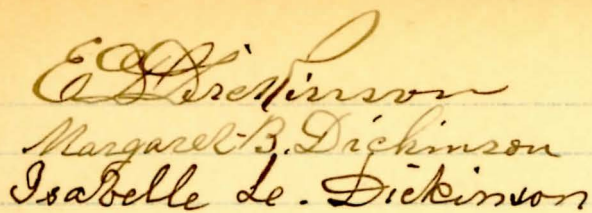 E D Dickinson
Margaret B. Dickinson
Isabelle Le. Dickinson